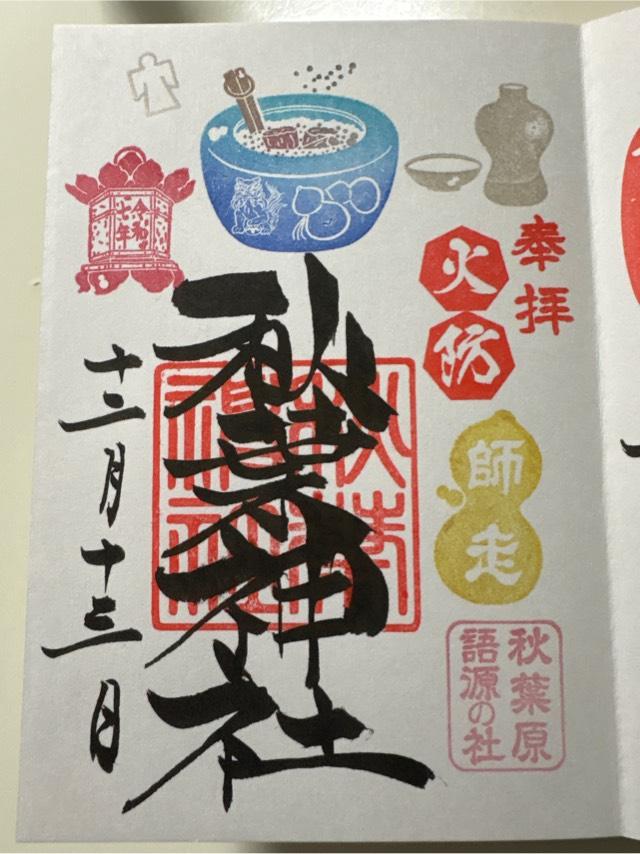 奉拝
火防
師走
秋葉原
語源の社
秋葉神社
秋葉
神社
令和
七年
十二月十三日